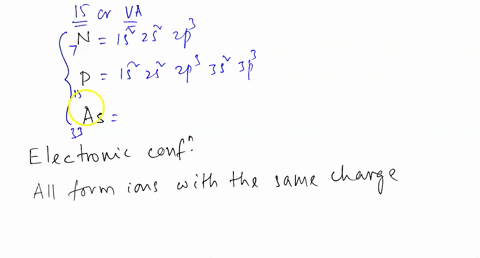 15 or VA
7N = 1s² 2s² 2p³
15P = 1s² 2s² 2p³ 3s² 3p³
33As =
Electronic confⁿ:
All form ions with the same charge